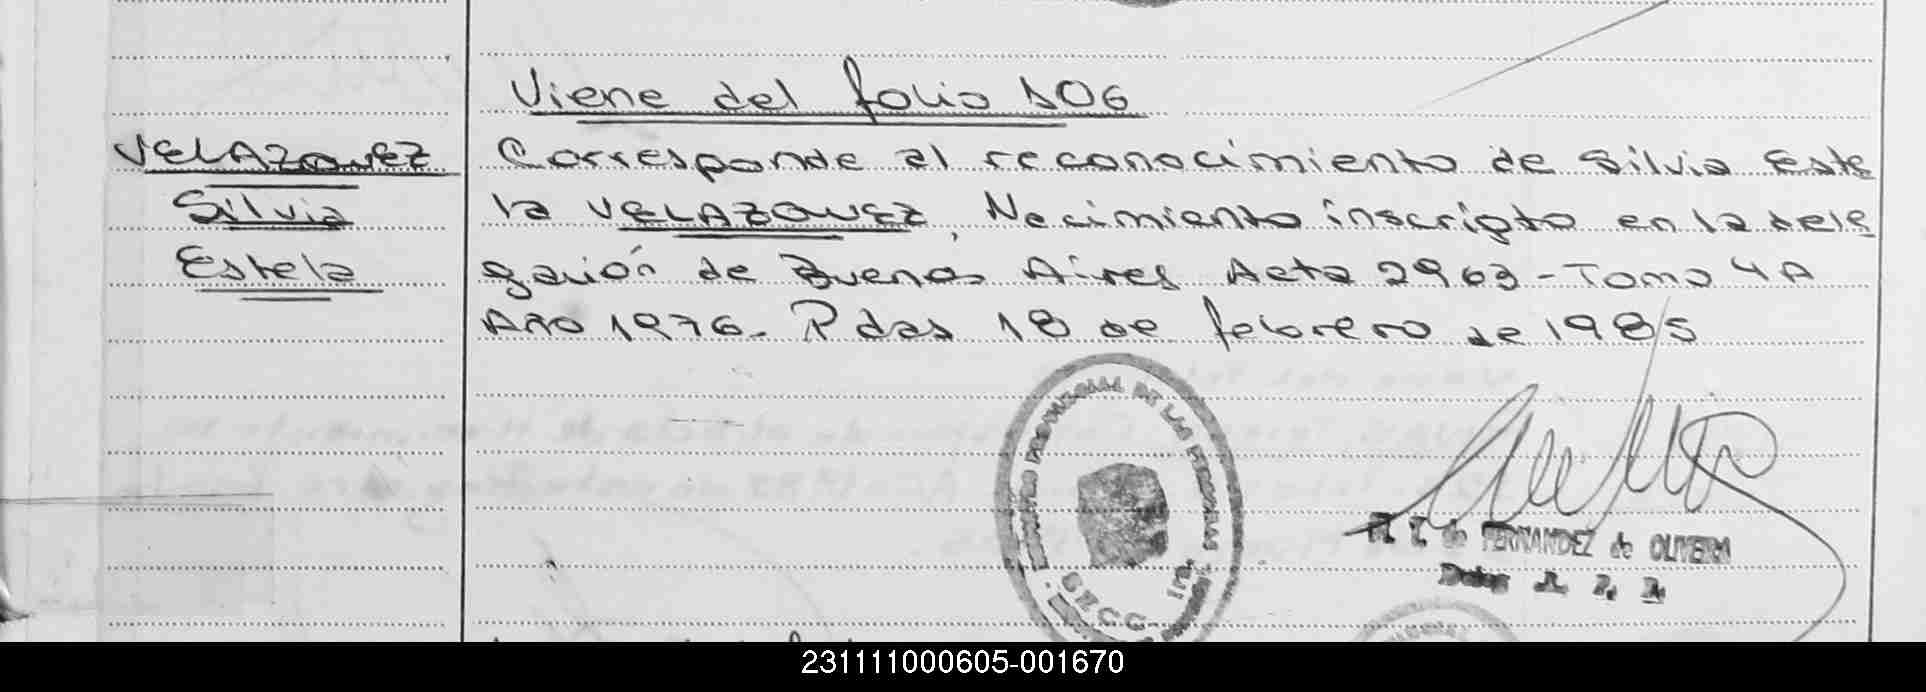 Viene del folio 106
VELAZQUEZ
Silvia
Estela
Corresponde al reconocimiento de Silvia Este
la VELAZQUEZ, Nacimiento inscripto en la dele
gación de Buenos Aires Acta 2963 - Tomo 4A
Año 1976. Pdas 18 de febrero de 1985
REGISTRO PROVINCIAL DE LAS PERSONAS
SECC.
de FERNANDEZ de OLIVEIRA
231111000605-001670